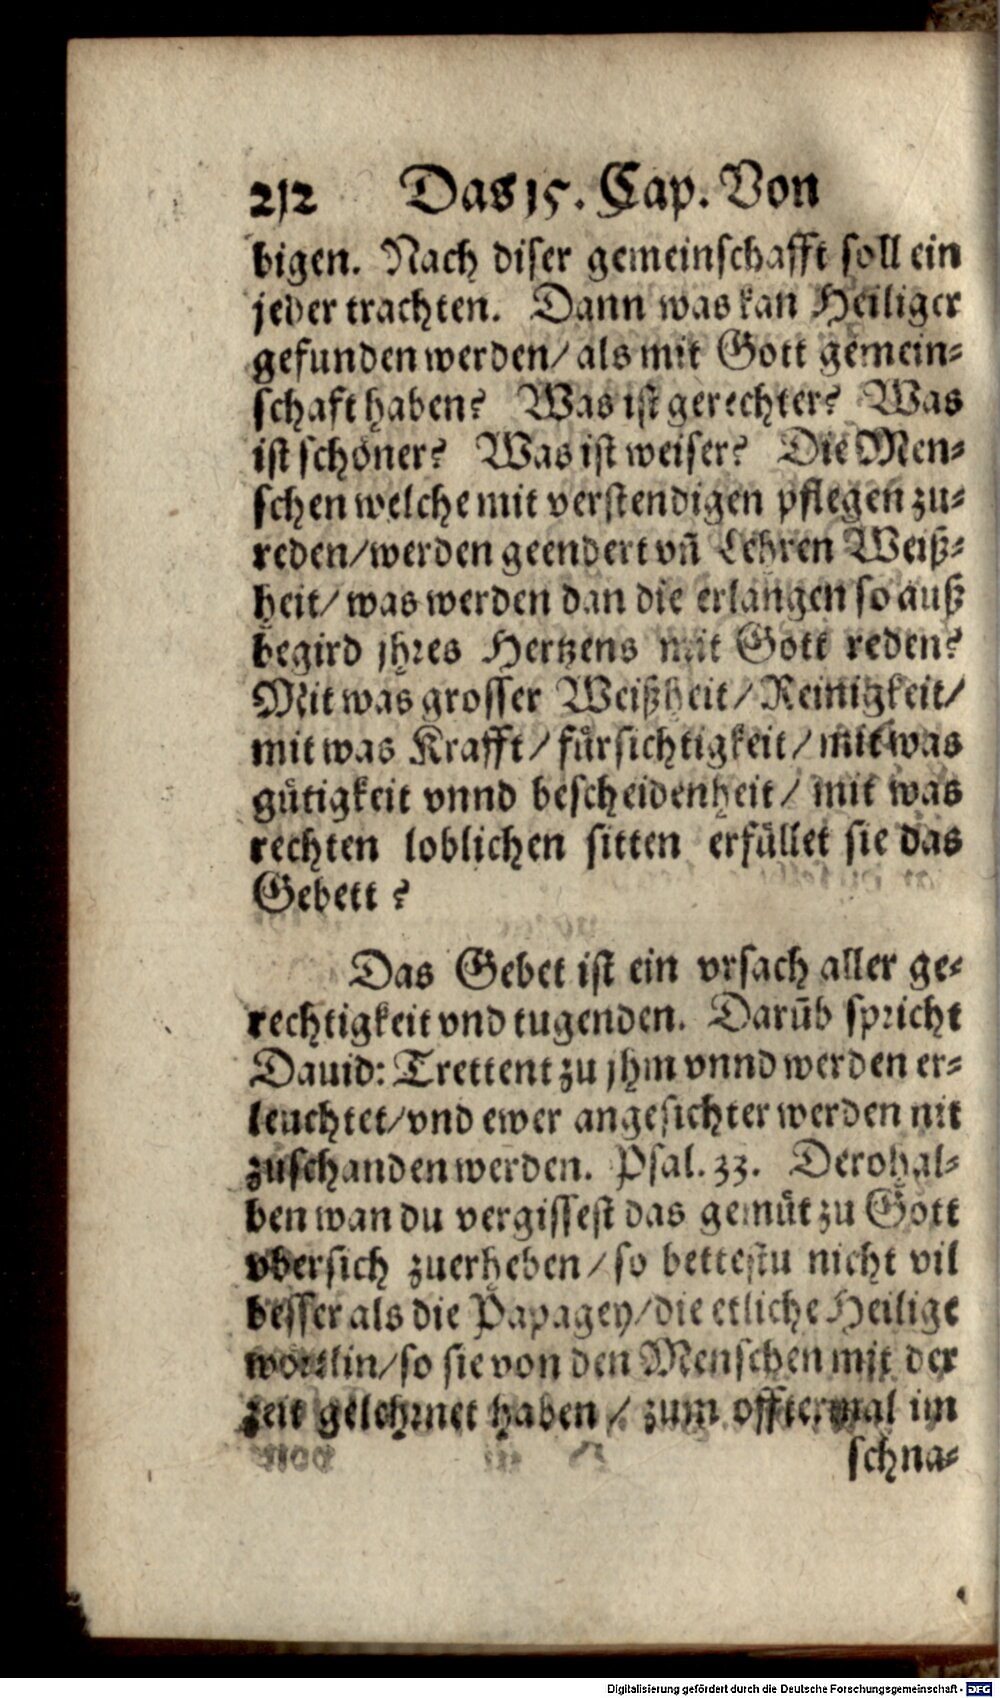 212 Das 15. Cap. Von
bigen. Nach diser gemeinschafft soll ein
jeder trachten. Dann was kan Heiliger
gefunden werden/ als mit Gott gemein-
schaft haben? Was ist gerechter? Was
ist schöner? Was ist weiser? Die Men-
schen welche mit verstendigen pflegen zu-
reden/werden geendert vñ Lehren Weiß-
heit/ was werden dan die erlangen so auß
begird jhres Hertzens mit Gott reden?
Mit was grosser Weißheit/ Reinigkeit/
mit was Krafft/ fürsichtigkeit/ mit was
gütigkeit vnnd bescheidenheit/ mit was
rechten loblichen sitten erfüllet sie das
Gebett?
Das Gebet ist ein vrsach aller ge-
rechtigkeit vnd tugenden. Darüb spricht
Dauid: Trettent zu jhm vnnd werden er-
leuchtet/vnd ewer angesichter werden nit
zuschanden werden. Psal. 33. Derohal-
ben wan du vergissest das gemüt zu Gott
vbersich zuerheben/ so bettestu nicht vil
besser als die Papagey/die etliche Heilige
wörtlin/so sie von den Menschen mit der
zeit gelehrnet haben/ zum offtermal im
schna-
Digitalisierung gefördert durch die Deutsche Forschungsgemeinschaft - DFG